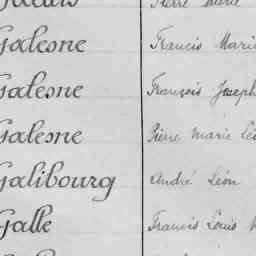 Pierre Marie
Galesne Francis Marie
Galesne François Joseph
Galesne Pierre Marie Léo
Galibourg André Léon
Galle Francis Louis